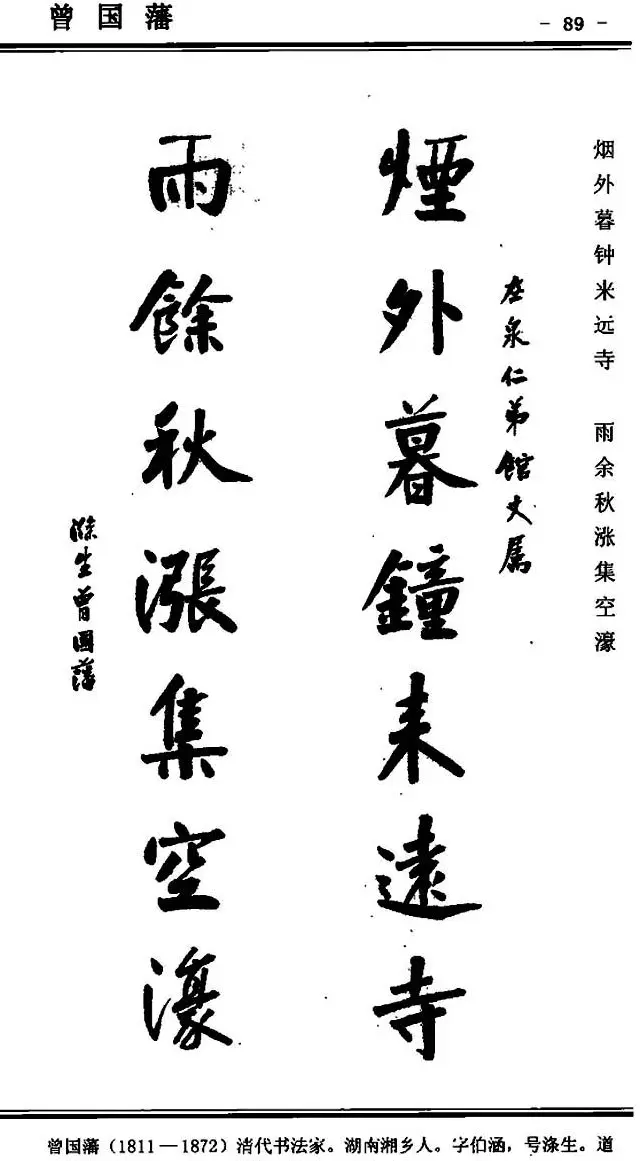 曾国藩
- 89 -
烟外暮钟来远寺 雨余秋涨集空濠
泉仁弟館丈属
煙外暮鐘来遠寺
雨餘秋漲集空濠
滌生曾國藩
曾国藩(1811—1872)清代书法家。湖南湘乡人。字伯涵，号涤生。道